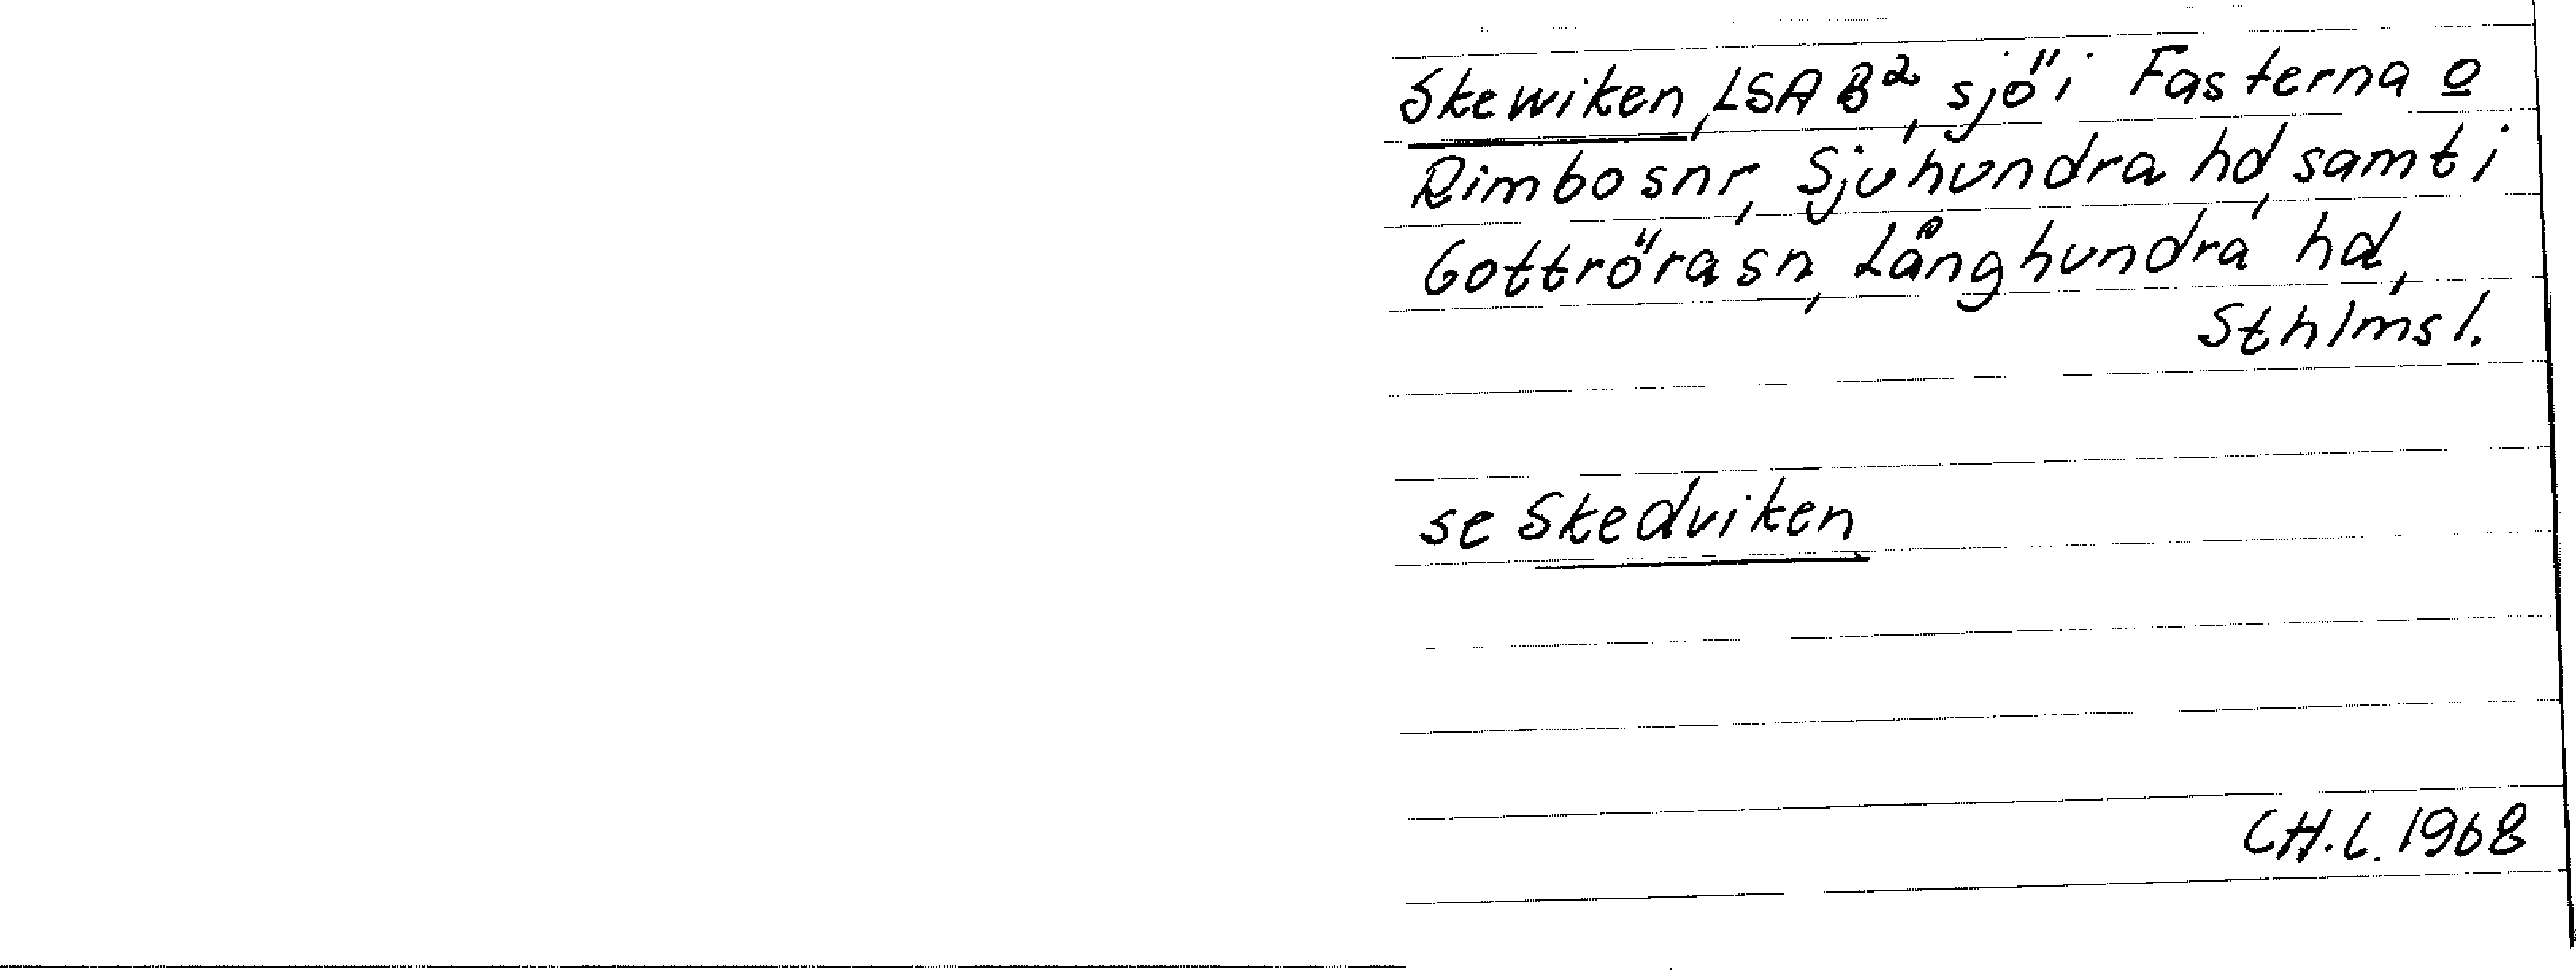 Skewiken, LSA B², sjö i Fasterna o
Rimbo snr, Sjuhundra hd, samt i
Gottröra sn, Långhundra hd,
Sthlms l.
se Skedviken
CH.L. 1968